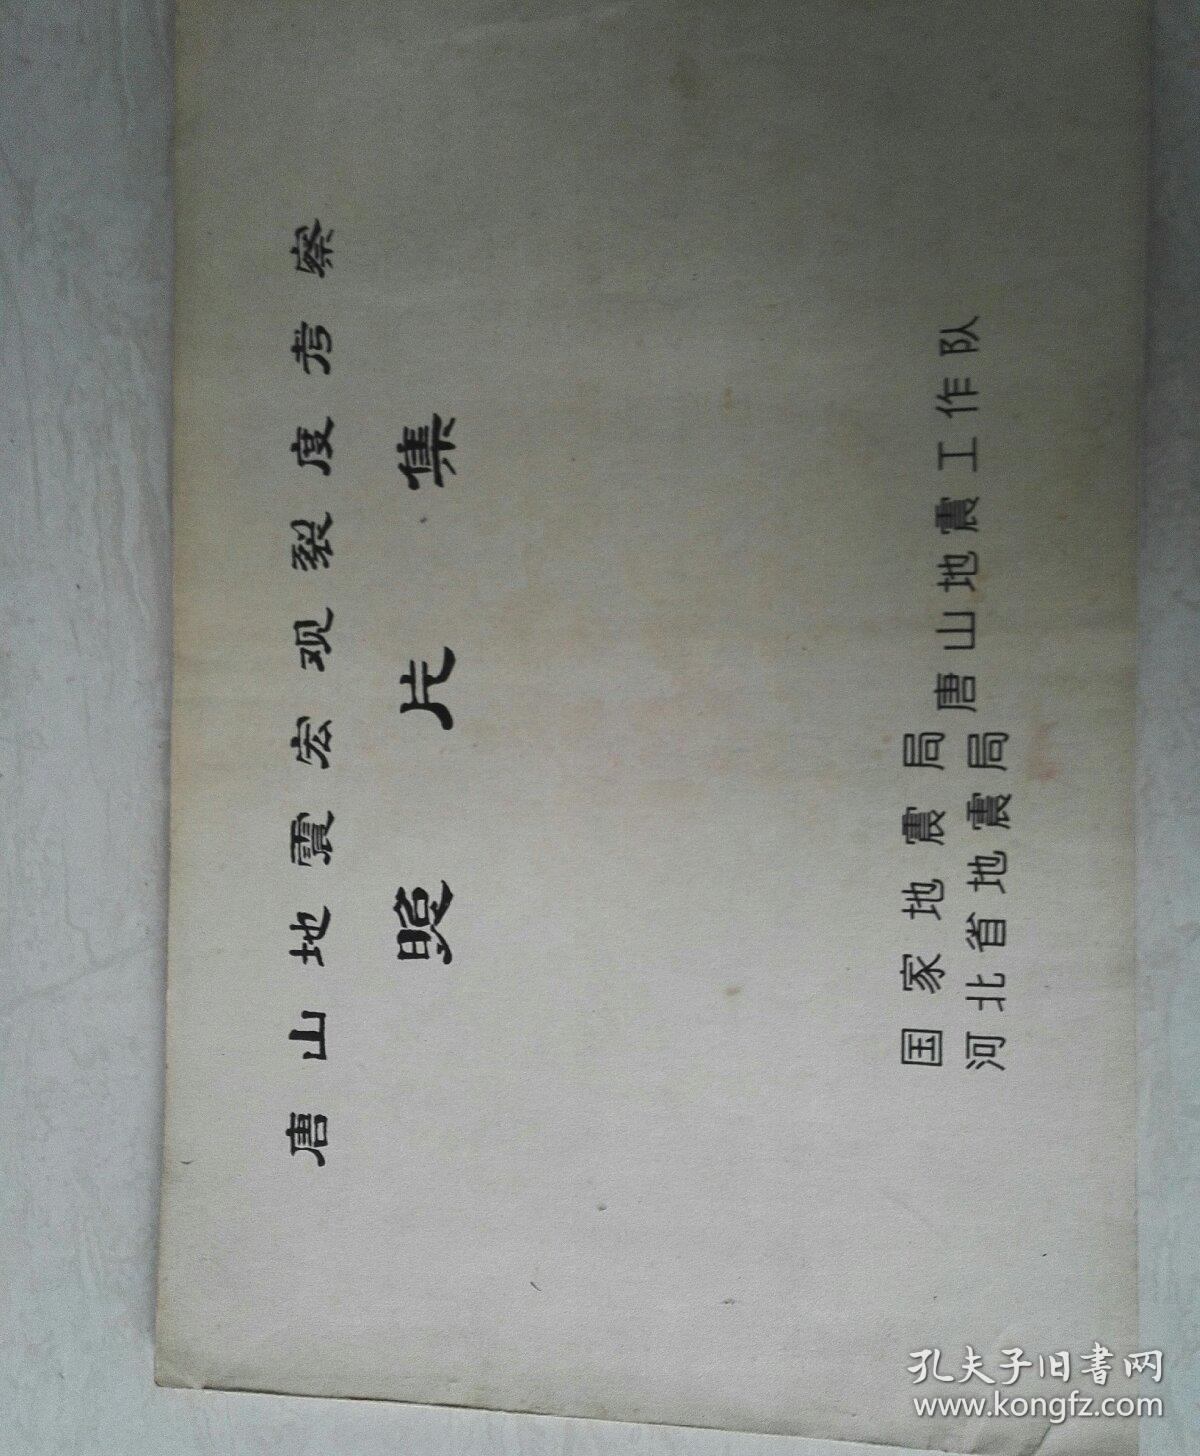 唐山地震宏观裂度考察
照片集
国家地震局
河北省地震局
唐山地震工作队
孔夫子旧书网
www.kongfz.com